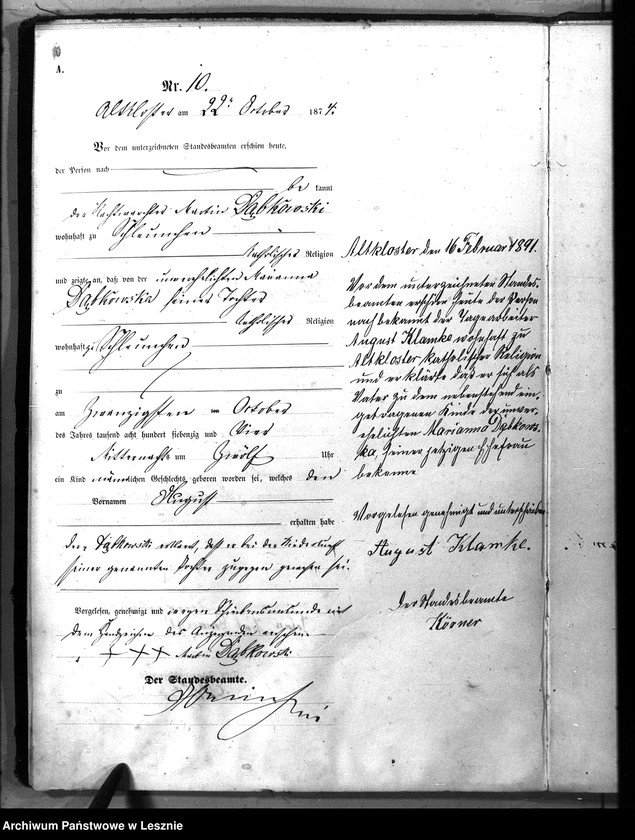 A.
Nr. 10.
Altkloster am 22t October 1874.
Vor dem unterzeichneten Standesbeamten erschien heute,
der Person nach
be kannt
der Nachtwächter Martin Dąbkowski
wohnhaft zu Schleunchen
katholischer Religion
und zeigte an, daß von der unverehelichten Marianna
Dąbkowska seiner Tochter
katholischer Religion
wohnhaft zu Schleunchen
zu
am Zwanzigsten October
des Jahres tausend acht hundert siebenzig und Vier
Mitternachts um Zwölf Uhr
ein Kind männlichen Geschlechts geboren worden sei, welches den
Vornamen August
erhalten habe
Der Dąbkowski erklärt, daß er bei der Niederkunft
seiner genannten Tochter zugegen gewesen sei.
Vorgelesen, genehmigt und wegen Schreibensunkunde mit
dem Handzeichen des Anzeigenden versehen
+ + + Martin Dąbkowski
Der Standesbeamte.
Altkloster den 16 Februar 1891.
Vor dem unterzeichneten Standes-
beamten erschien heute der Person
nach bekannt der Tagearbeiter
August Klamke wohnhaft zu
Altkloster katholischer Religion
und erklärte daß er sich als
Vater zu dem nebenstehend ein-
getragenen Kinde der unver-
ehelichten Marianna Dąbkows-
ka, seiner jetzigen Ehefrau
bekenne
Vorgelesen genehmigt und unterschrieben
August Klamke.
Der Standesbeamte
Körner
Archiwum Państwowe w Lesznie